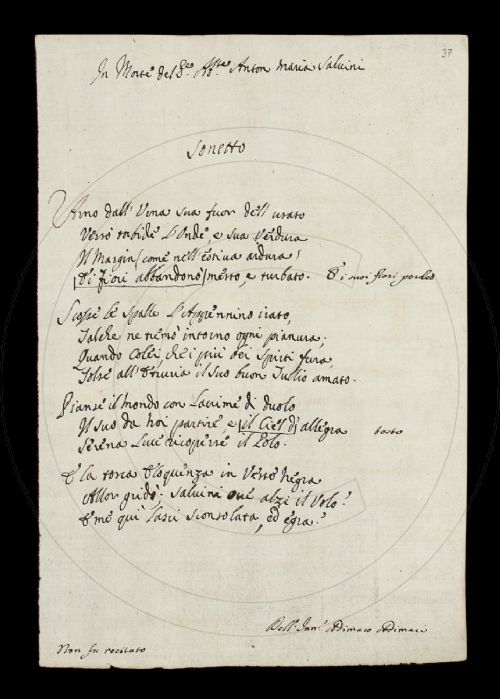 37
In Morte del Sr. Abte Anton Maria Salvini
Sonetto
L'Arno dall'Urna sua fuor dell'usato
Versò torbide l'Onde, e sua Verdura
Il Margin (come nell'estiva arsura)
Di fiori abbandonò mesto, e turbato. E i suoi fiori perdeo
Scosse le spalle l'Appennino irato,
Talchè ne tremò intorno ogni pianura;
Quando Colei, che i più bei Spirti fura,
Tolse all'Etruria il suo buon Tullio amato.
Pianse il mondo con Lacrime di duolo
Il suo da noi partire, e il Ciel d'allegra tosto
Serena Luce ricoperse il Polo.
E la tosca Eloquenza in Veste negra
Allor gridò: Salvini ove alzi il Volo?
E me qui lasci sconsolata, ed egra?
Dell' Adimaro Adimari
Non fu recitato